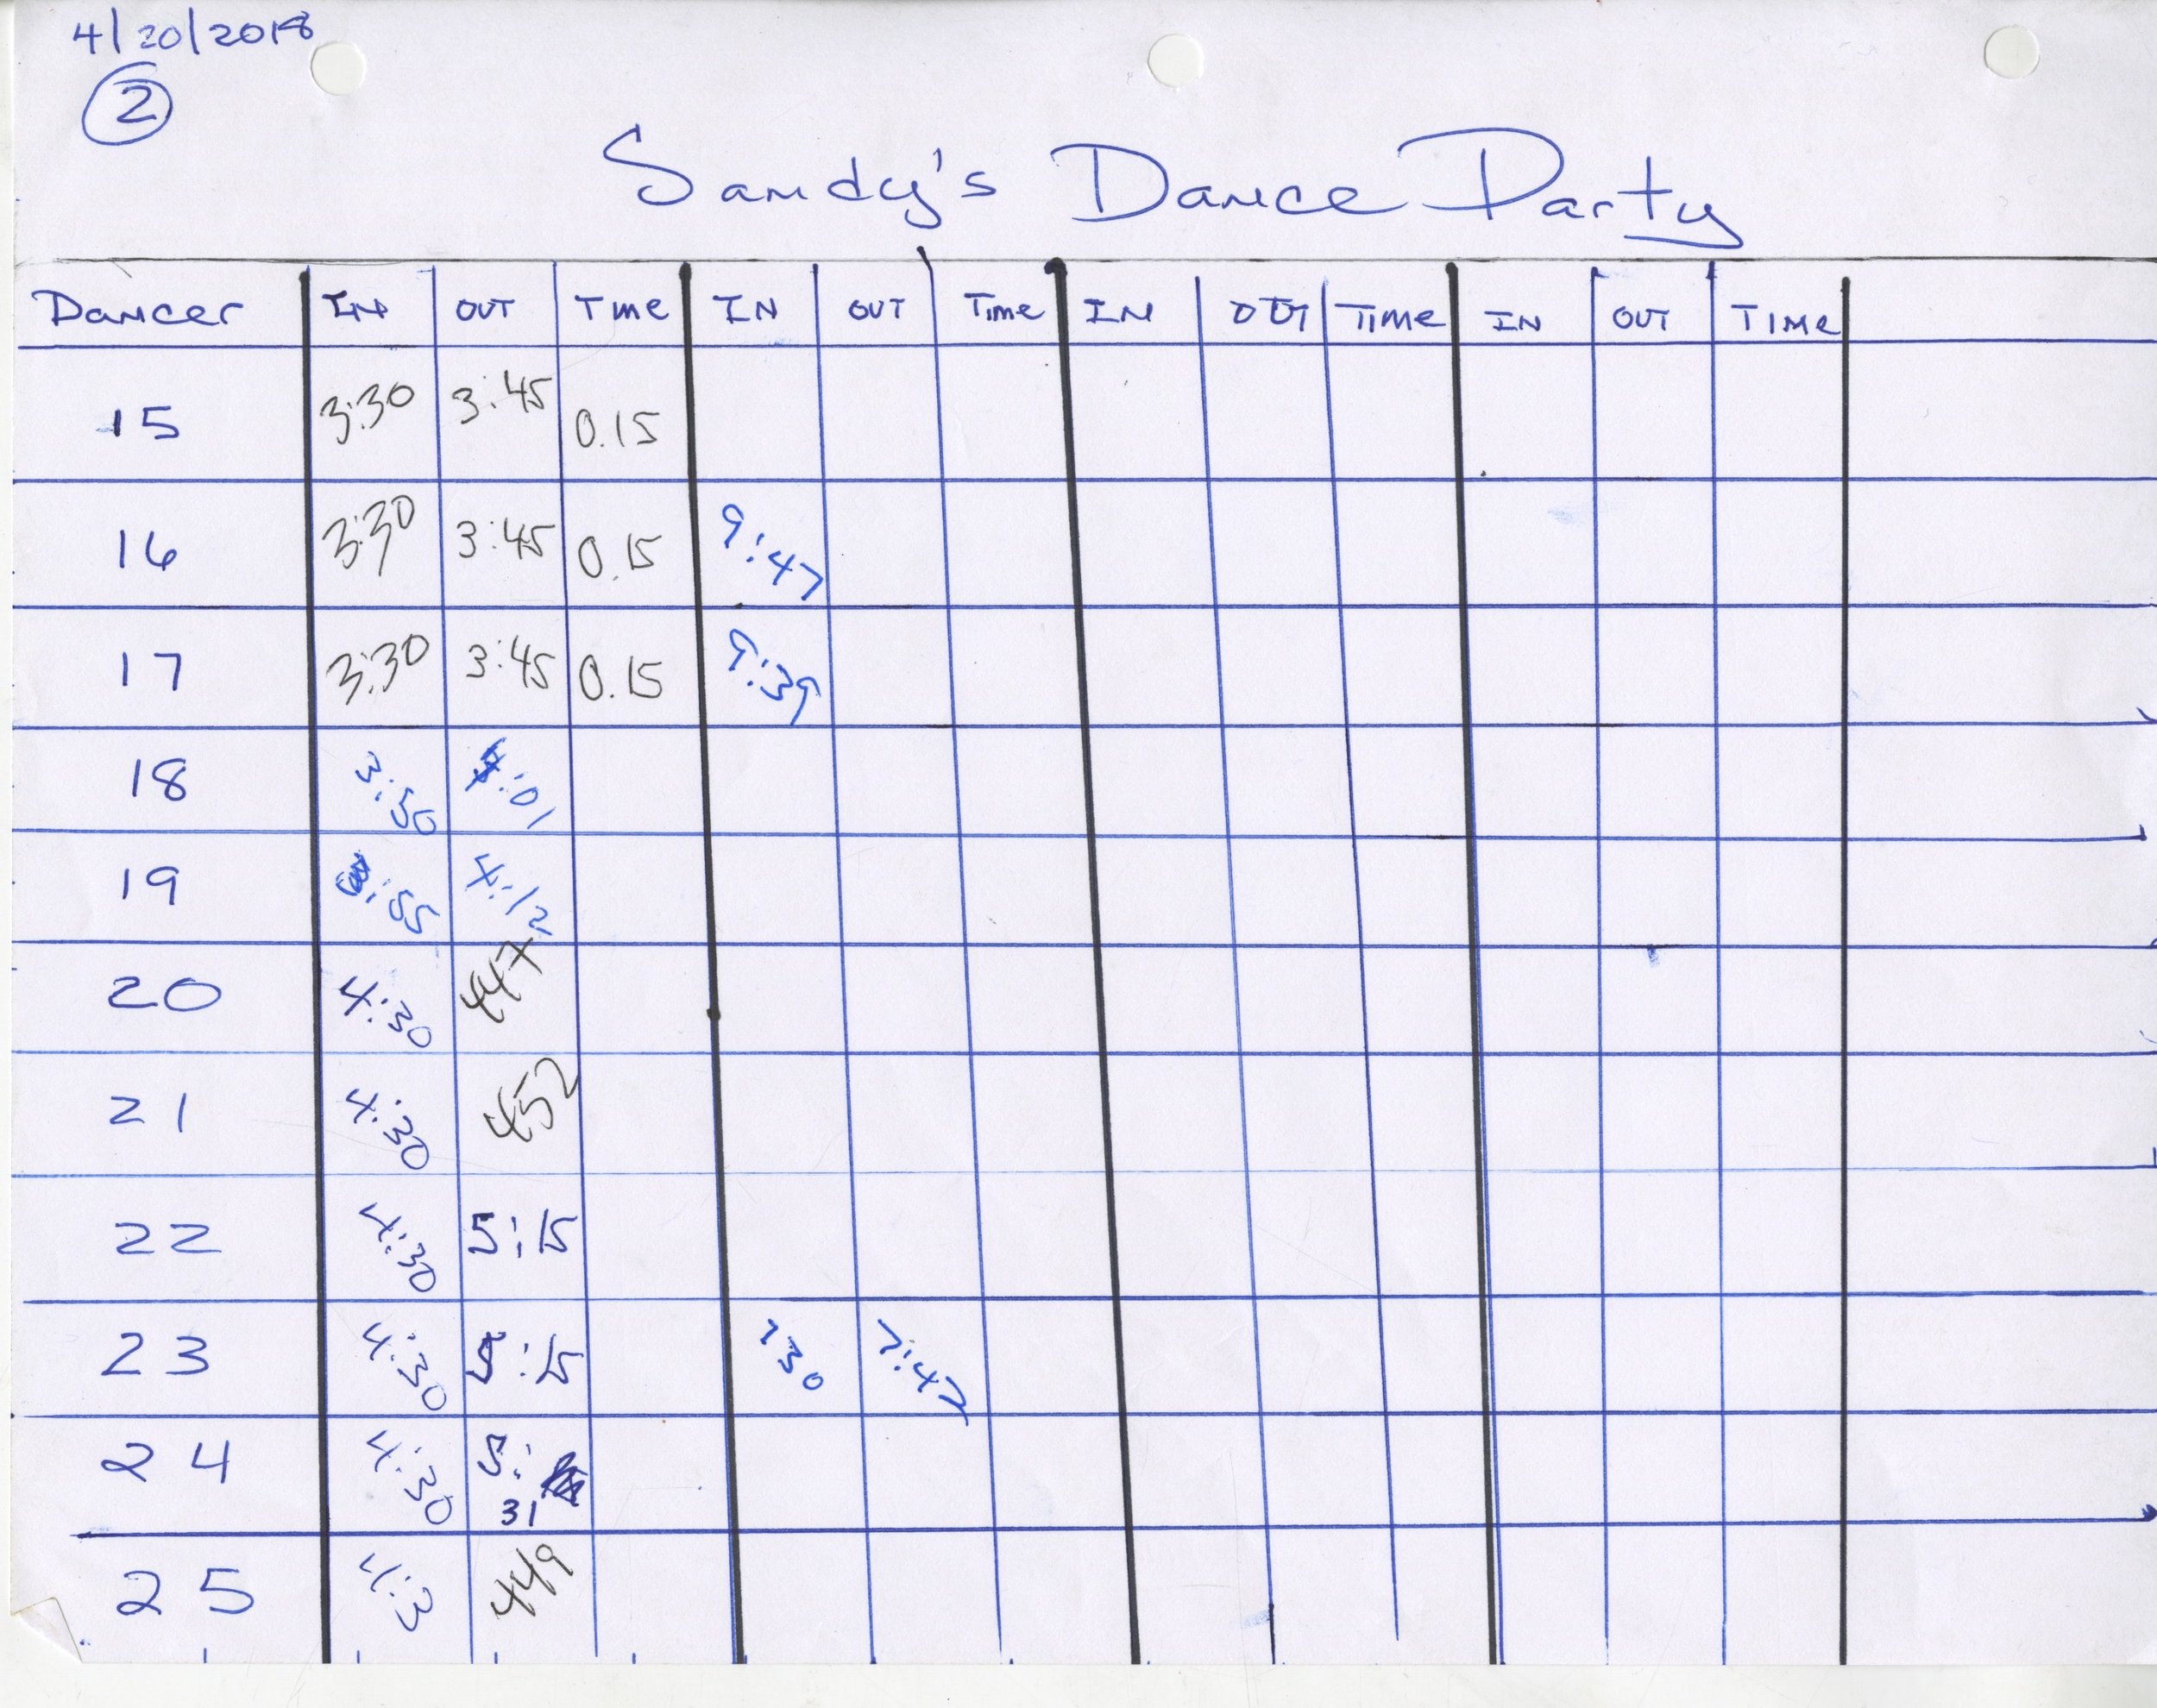 4/20/2018
2
Sandy's Dance Party
Dancer IN OUT Time IN OUT Time IN OUT Time IN OUT TIME
15 3:30 3:45 0.15
16 3:30 3:45 0.15 9:47
17 3:30 3:45 0.15 9:39
18 3:50 4:01
19 :55 4:12
20 4:30 447
21 4:30 452
22 4:30 5:15
23 4:30 5:15 730 7:47
24 4:30 5:
31
25 4:3 449